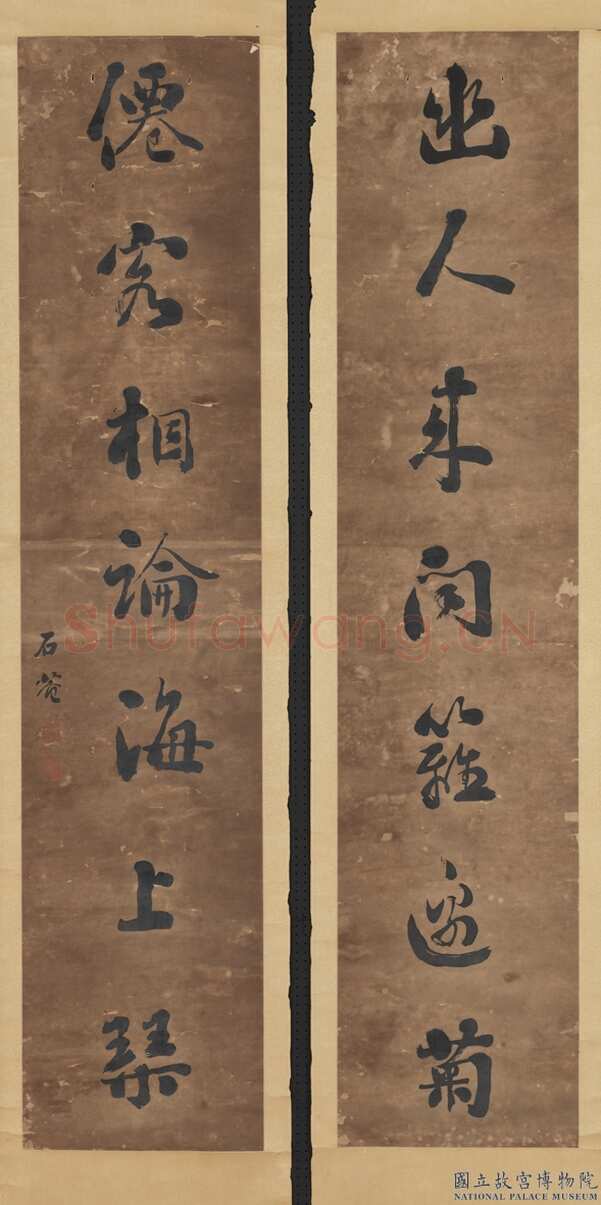 幽人來問籬邊菊
僊客相論海上琴
石菴
Shufawang.CN
國立故宮博物院
NATIONAL PALACE MUSEUM